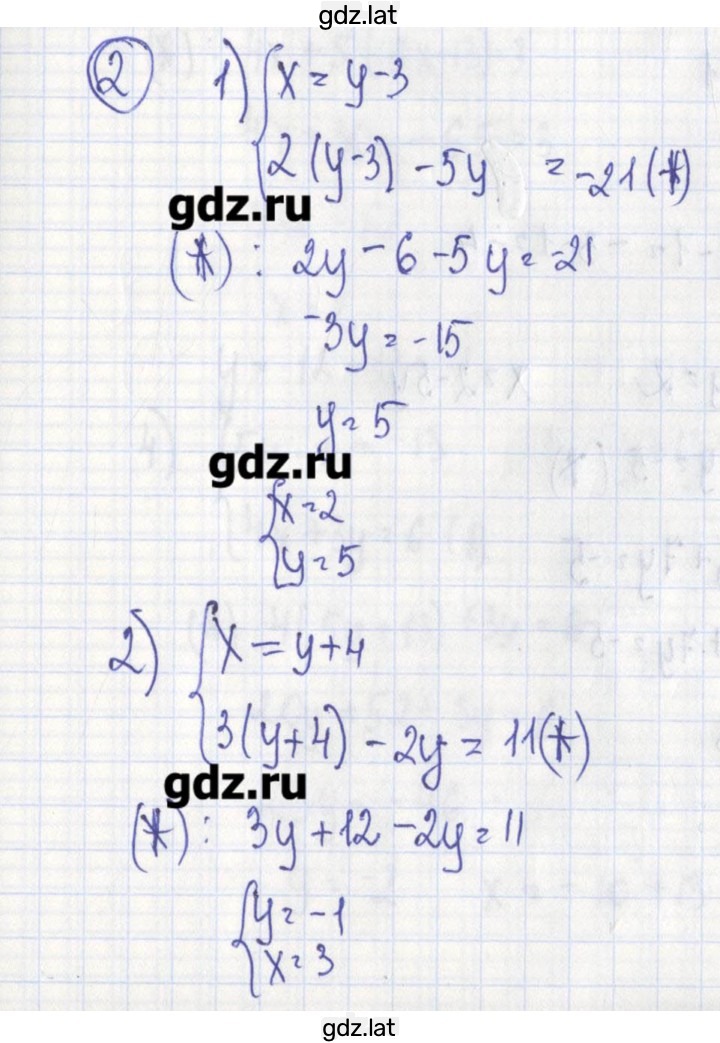 gdz.lat
2 1) { x = y - 3
2(y-3) - 5y = -21 (*)
gdz.ru
(*): 2y - 6 - 5y = -21
-3y = -15
y = 5
gdz.ru
{ x = 2
y = 5
2) { x = y + 4
3(y+4) - 2y = 11 (*)
gdz.ru
(*): 3y + 12 - 2y = 11
{ y = -1
x = 3
gdz.lat